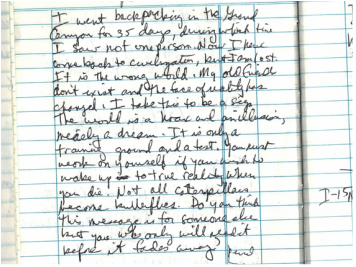 I went backpacking in the Grand
Canyon for 35 days, during which time
I saw not one person. Now I have
come back to civilization, but I am lost.
It is the wrong world. My old friends
don't exist and the face of reality has
changed. I take this to be a sign.
The world is a hoax and an illusion,
merely a dream. It is only a
training ground and a test. You must
work on yourself if you wish to
wake up to true reality when
you die. Not all caterpillars
become butterflies. Do you think
this message is for someone else
but you who only will read it
before it fades away?
I-15